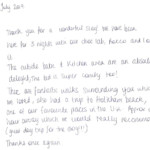 July 2019
Thank you for a wonderful stay! We have been
here for 3 nights with our choc lab, and
it
The outside bath & kitchen area are an absolute
delight, the bed is super comfy too!
There are fantastic walks surrounding you which
we loved, we had a trip to beach,
one of our favourite places in the U.K. Approx
hour away which we would really recommend
(great day trip for the dog!!)
Thanks once again